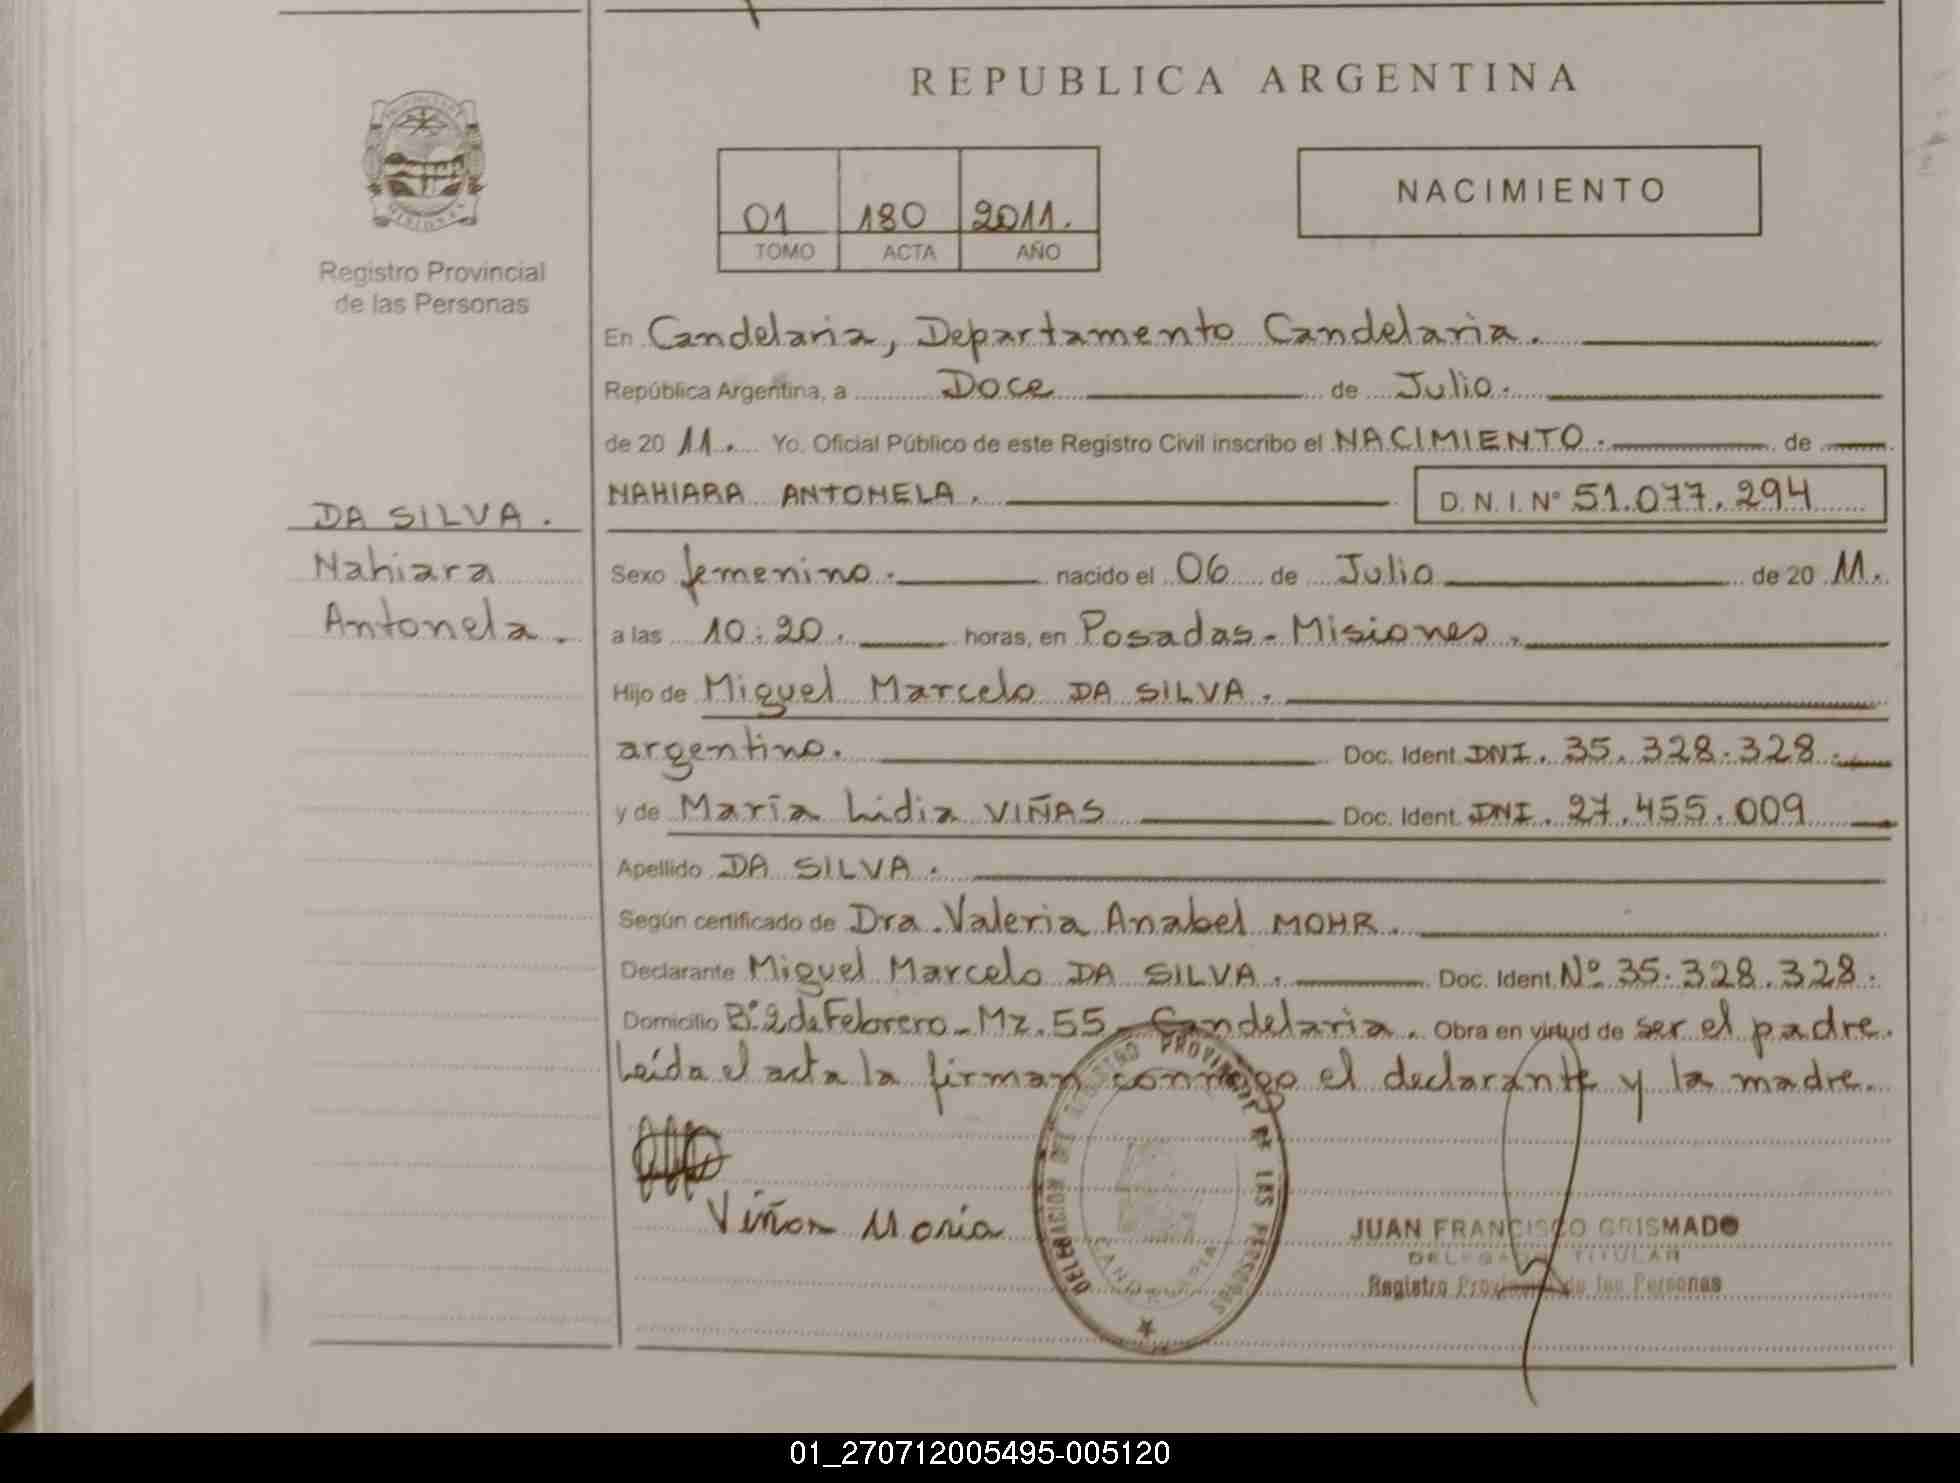 REPUBLICA ARGENTINA
PROVINCIA DE
MISIONES
Registro Provincial
de las Personas
01 180 2011.
TOMO ACTA AÑO
NACIMIENTO
En Candelaria, Departamento Candelaria.
República Argentina, a Doce de Julio.
de 20 11. Yo. Oficial Público de este Registro Civil inscribo el NACIMIENTO. de
NAHIARA ANTONELA. D. N. I. N° 51.077.294
DA SILVA.
Nahiara
Antonela.
Sexo femenino. nacido el 06 de Julio de 20 11.
a las 10:20. horas, en Posadas - Misiones.
Hijo de Miguel Marcelo DA SILVA.
argentino. Doc. Ident. DNI. 35.328.328.
y de María Lidia VIÑAS Doc. Ident. DNI. 27.455.009
Apellido DA SILVA.
Según certificado de Dra. Valeria Anabel MOHR.
Declarante Miguel Marcelo DA SILVA. Doc. Ident. Nº 35.328.328.
Domicilio Bº 2 de Febrero - Mz. 55 - Candelaria. Obra en virtud de ser el padre.
Leída el acta la firman conmigo el declarante y la madre.
Viñas María
DELEGACION DEL REGISTRO PROVINCIAL DE LAS PERSONAS
CANDELARIA
JUAN FRANCISCO GRISMADO
DELEGADO TITULAR
Registro Provincial de las Personas
01_270712005495-005120